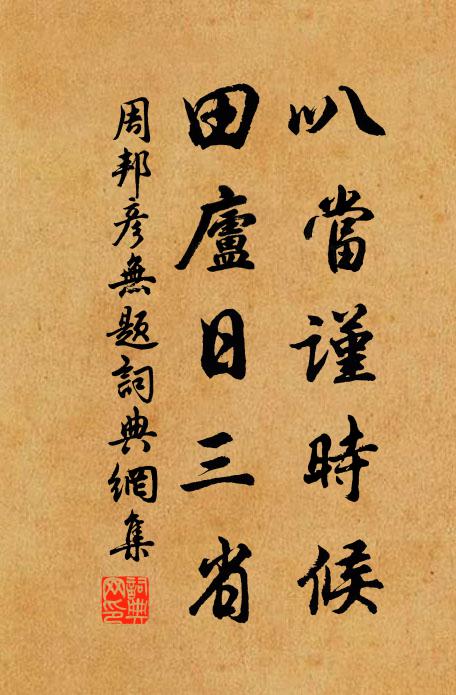 叭當謹時候
田廬日三省
周邦彥無題詞典網集
詞典網印